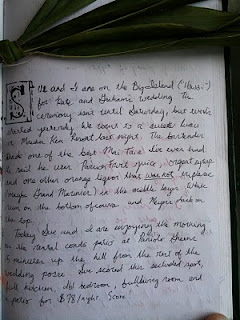 Sue and I are on the Big Island ("Hawai'i")
for Kate and Graham's wedding. The
ceremony isn't until Saturday, but we've
started yesterday. We went to a
Mauna Kea Resort last night. The bartender
made one of the best Mai Tais I've ever had.
He said he uses Passionfruit juice, orgeat syrup
and one other orange liquor that was not triplesec
(maybe Grand Marnier) in the middle layer. White
rum in the bottom of course and Meyers dark on
the top.
Today Sue and I are enjoying the morning
on the rental condo patio at
15 minutes up the hill from the rest of the
wedding posse. Sue scored this secluded spot,
full kitchen, bedroom, room and
a patio for $78/night. Score